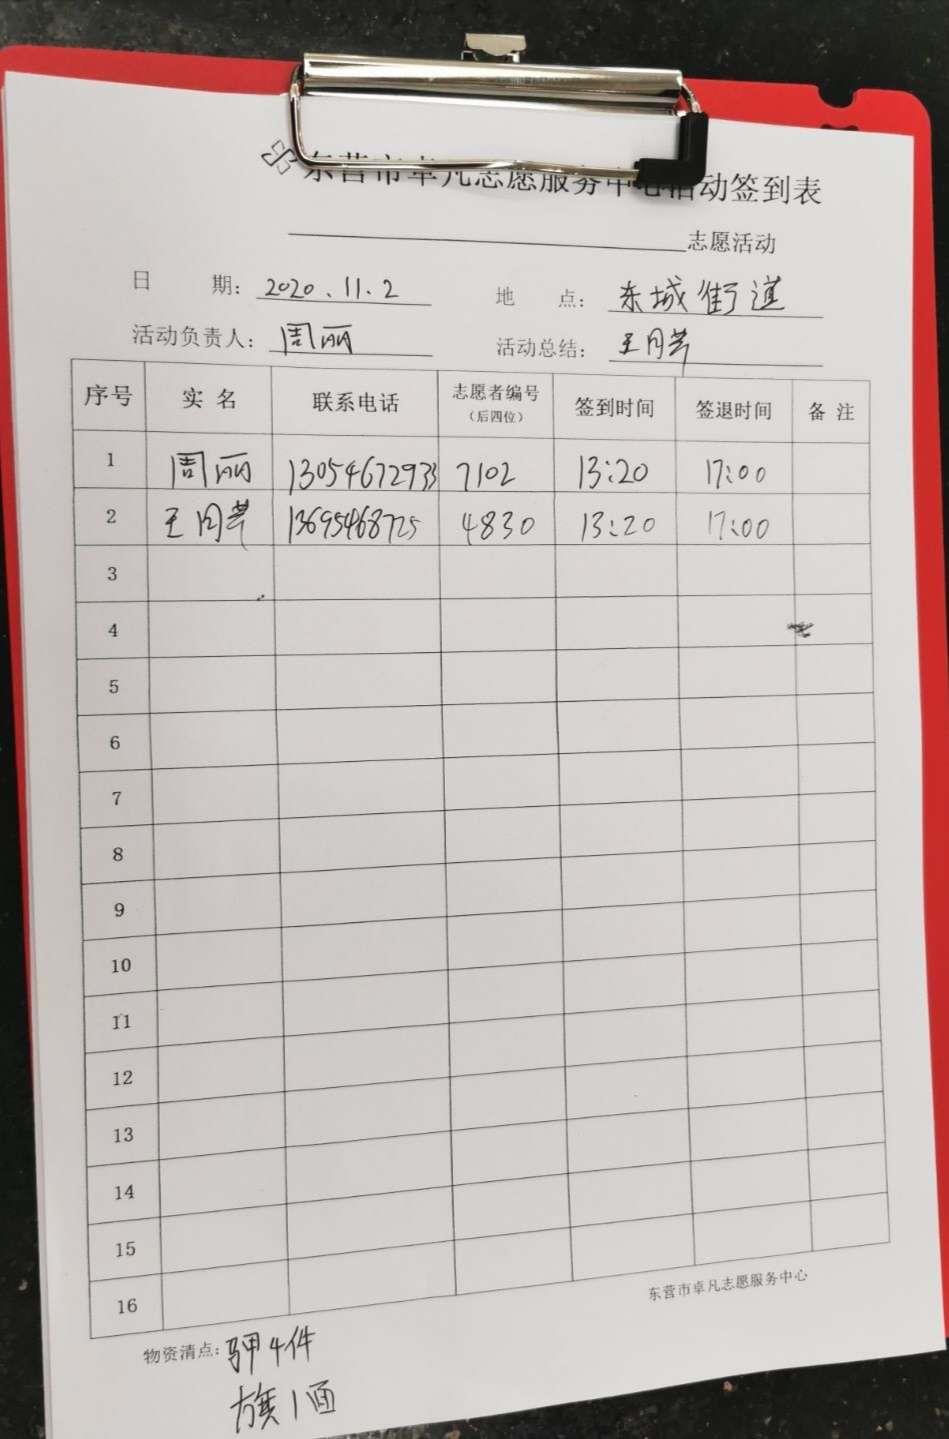 东营市卓凡志愿服务中心活动签到表
志愿活动
日 期: 2020.11.2 地 点: 东城街道
活动负责人: 周丽 活动总结: 王月芹
序号 实 名 联系电话 志愿者编号 (后四位) 签到时间 签退时间 备 注
1 周丽 13054672933 7102 13:20 17:00
2 王月芹 13695468725 4830 13:20 17:00
3
4
5
6
7
8
9
10
11
12
13
14
15
16
东营市卓凡志愿服务中心
物资清点: 马甲4件
旗1面